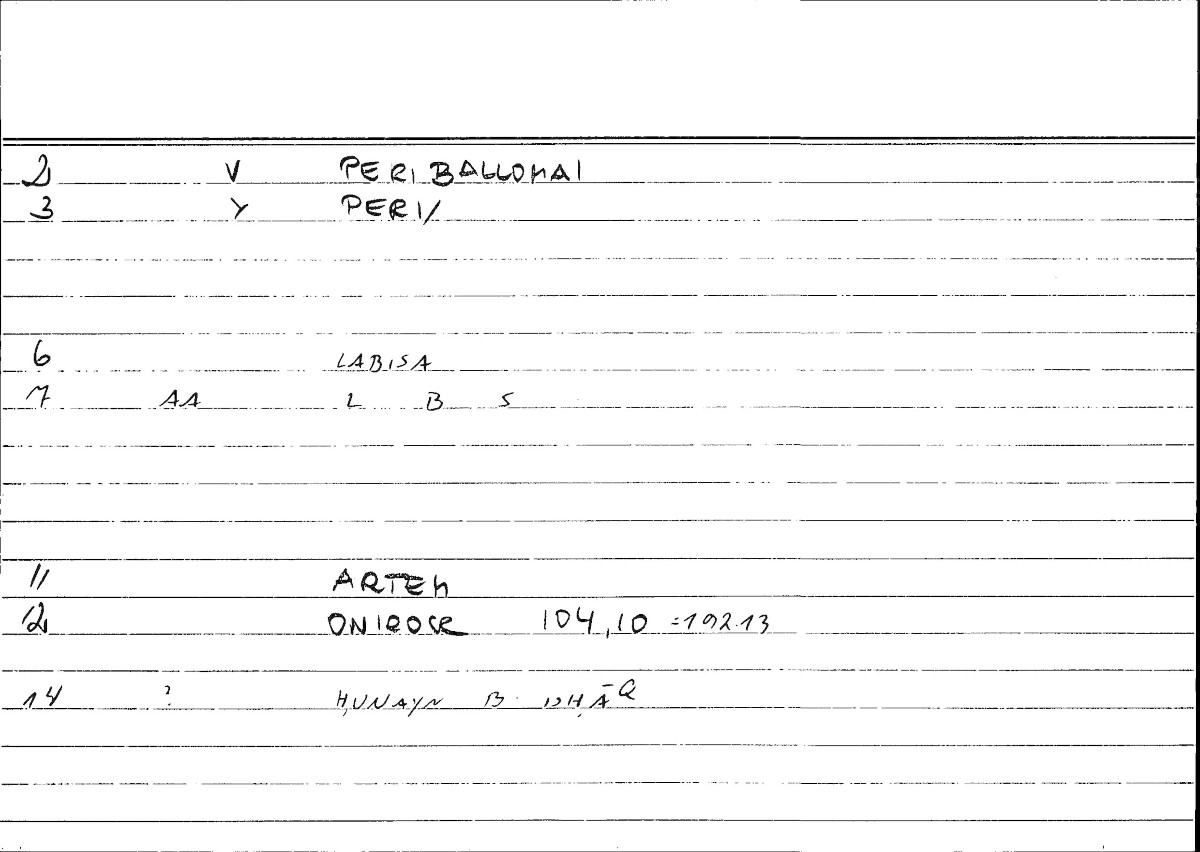 2 V PERI BALLOMAI
3 Y PERI/
6 LABISA
7 AA L B S
11 ARTEM
12 ONIROCR 104,10 =192.13
14 ? ḤUNAYN B. ISḤĀQ